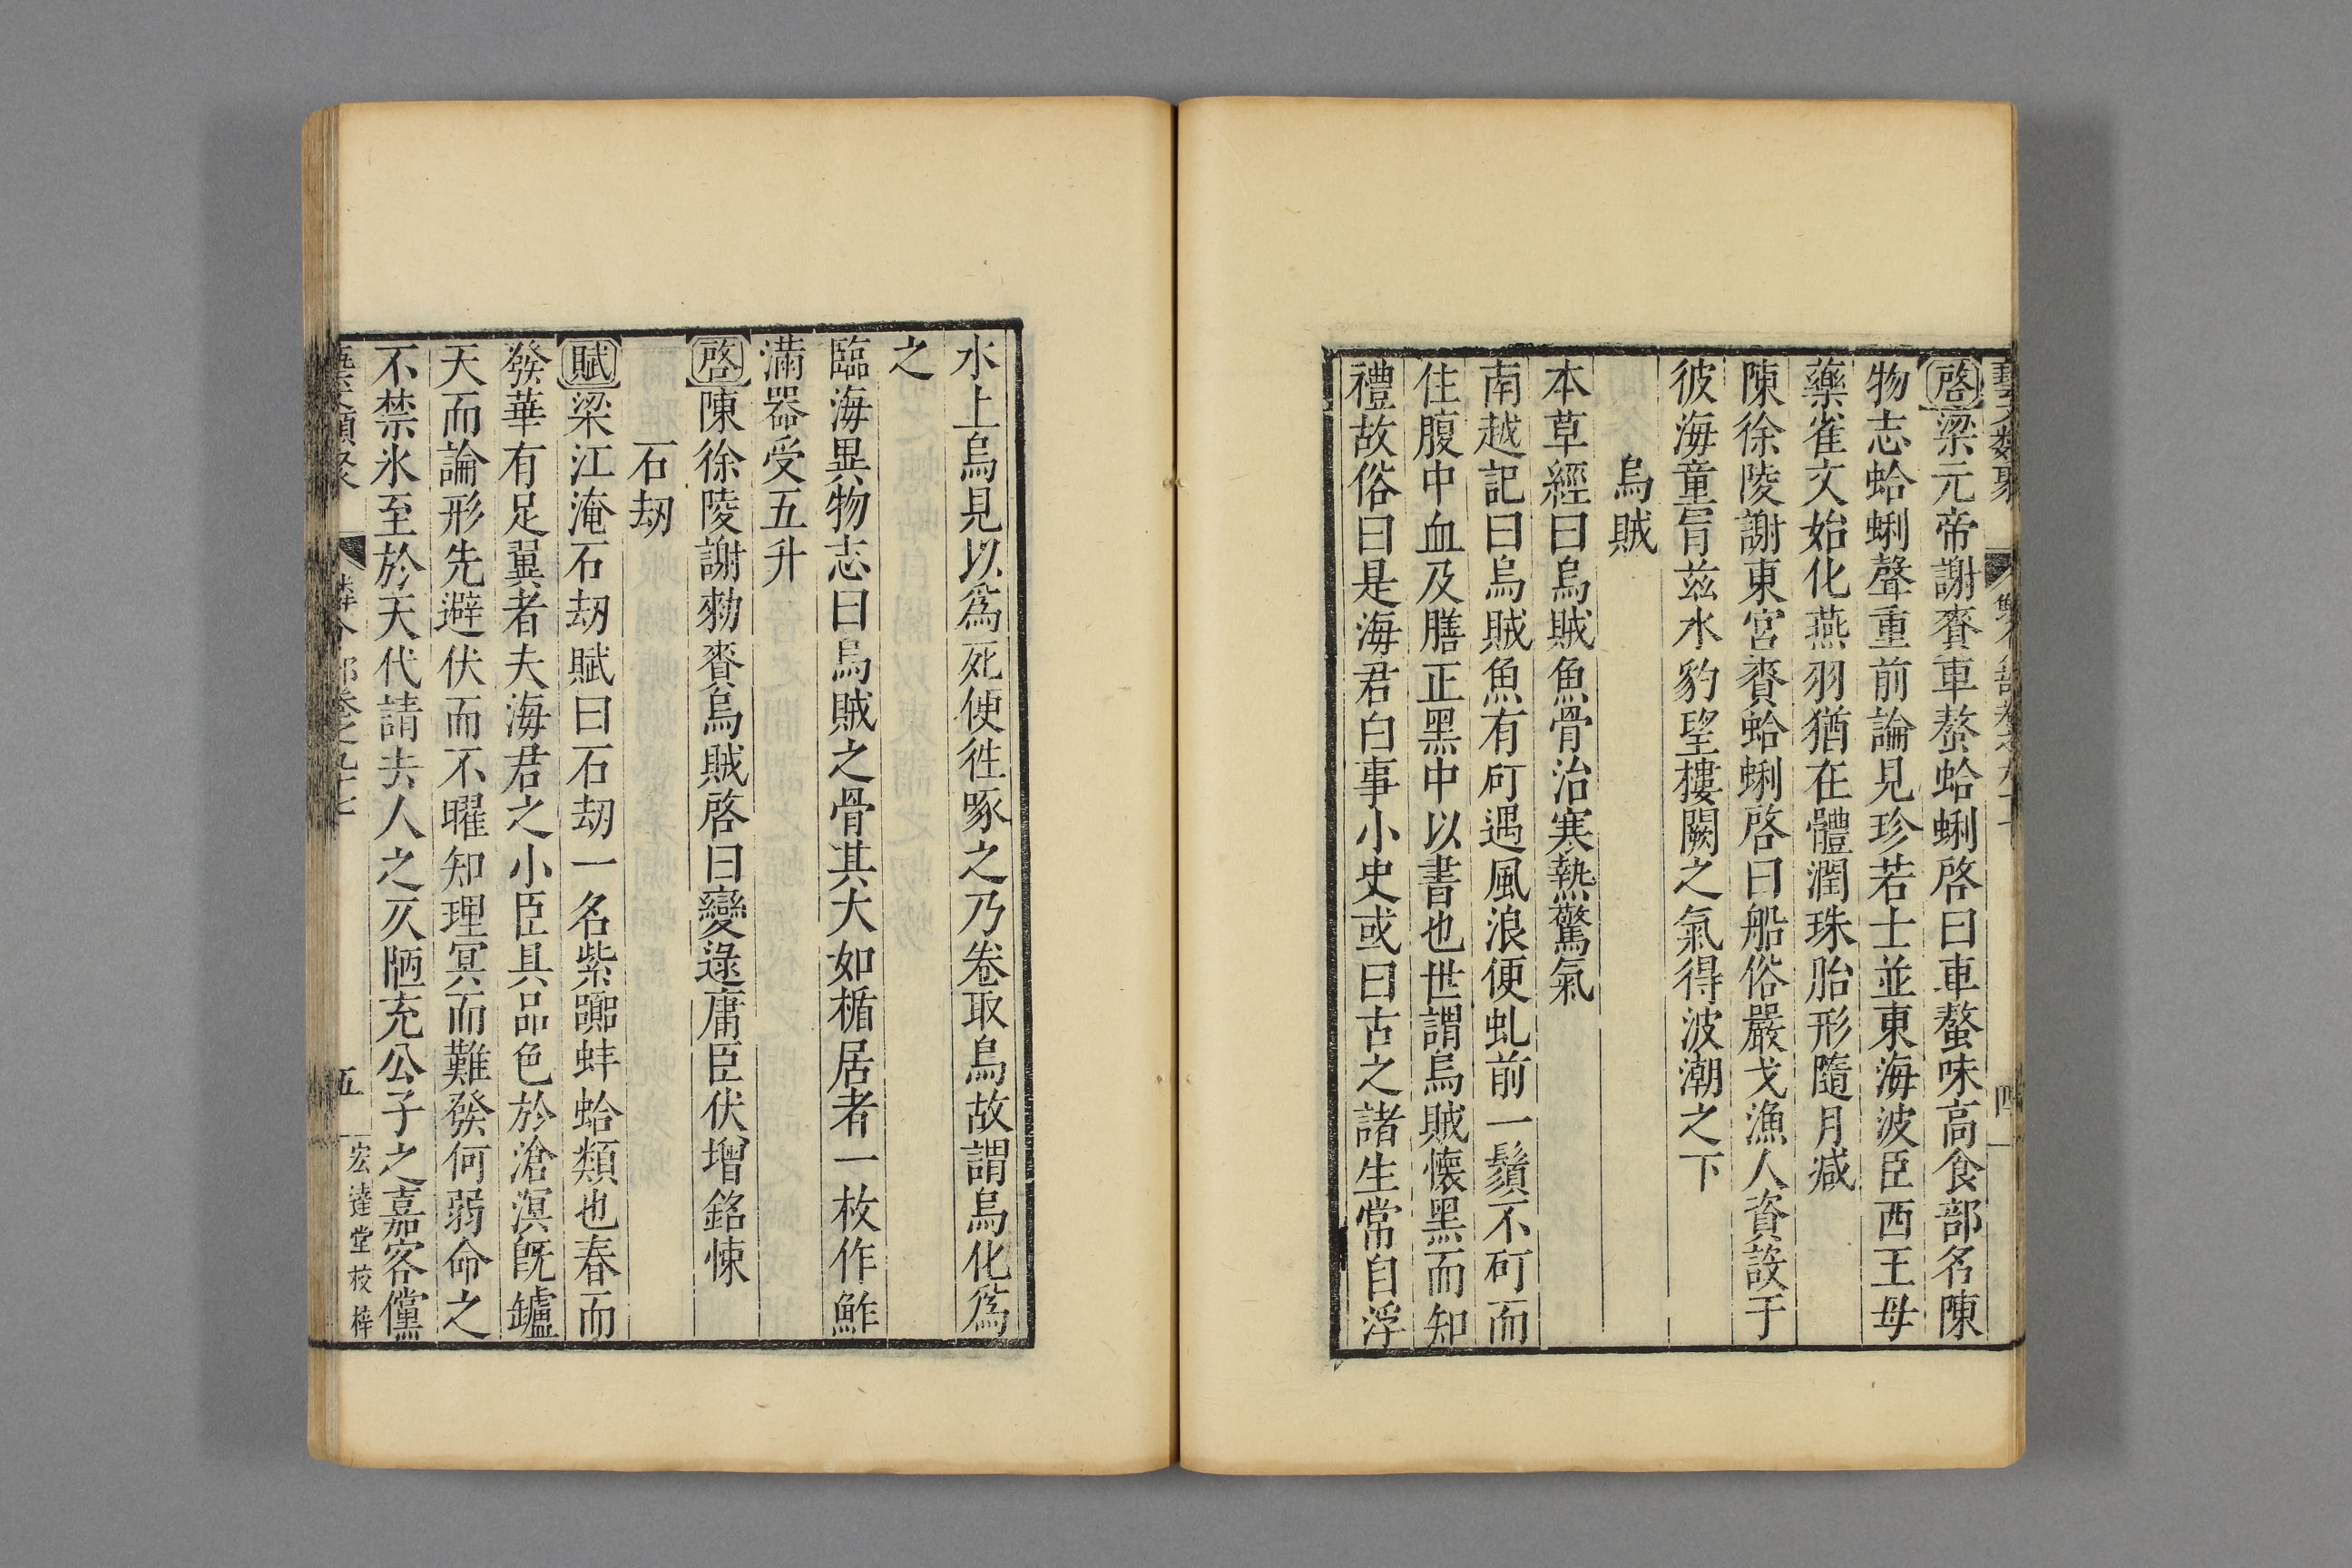 啓梁元帝謝賚車螯蛤蜊啓曰車螯味高食部名陳
物志蛤蜊聲重前論見珍若士並東海波臣西王母
藥雀文始化燕羽猶在體潤珠胎形隨月減
陳徐陵謝東宮賚蛤蜊啓曰船俗嚴戈漁人資設于
彼海童胥兹水豹望樓闕之氣得波潮之下
烏賊
本草經曰烏賊魚骨治寒熱驚氣
南越記曰烏賊魚有矴遇風浪便虬前一鬚不矴而
住腹中血及膳正黑中以書也世謂烏賊懐黑而知
禮故俗曰是海君白事小史或曰古之諸生常自浮
水上烏見以爲死便徃啄之乃卷取烏故謂烏化爲
之
臨海異物志曰烏賊之骨其大如楯居者一枚作鮓
滿器受五升
啓陳徐陵謝勑賚烏賊啓曰變逯庸臣伏增銘悚
石刧
賦梁江淹石刧賦曰石刧一名紫䶂蚌蛤類也春而
發華有足翼者夫海君之小臣具品色於滄溟旣鑪
天而論形先避伏而不曜知理冥而難發何弱命之
不禁氷至於天代請去人之仄陋充公子之嘉客儻
五
宏達堂校梓